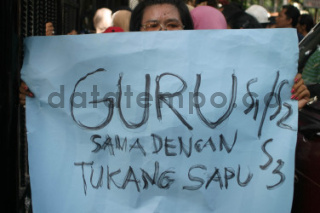 GURU S1/S2
SAMA DENGAN S3
TUKANG SAPU
datatempo.co